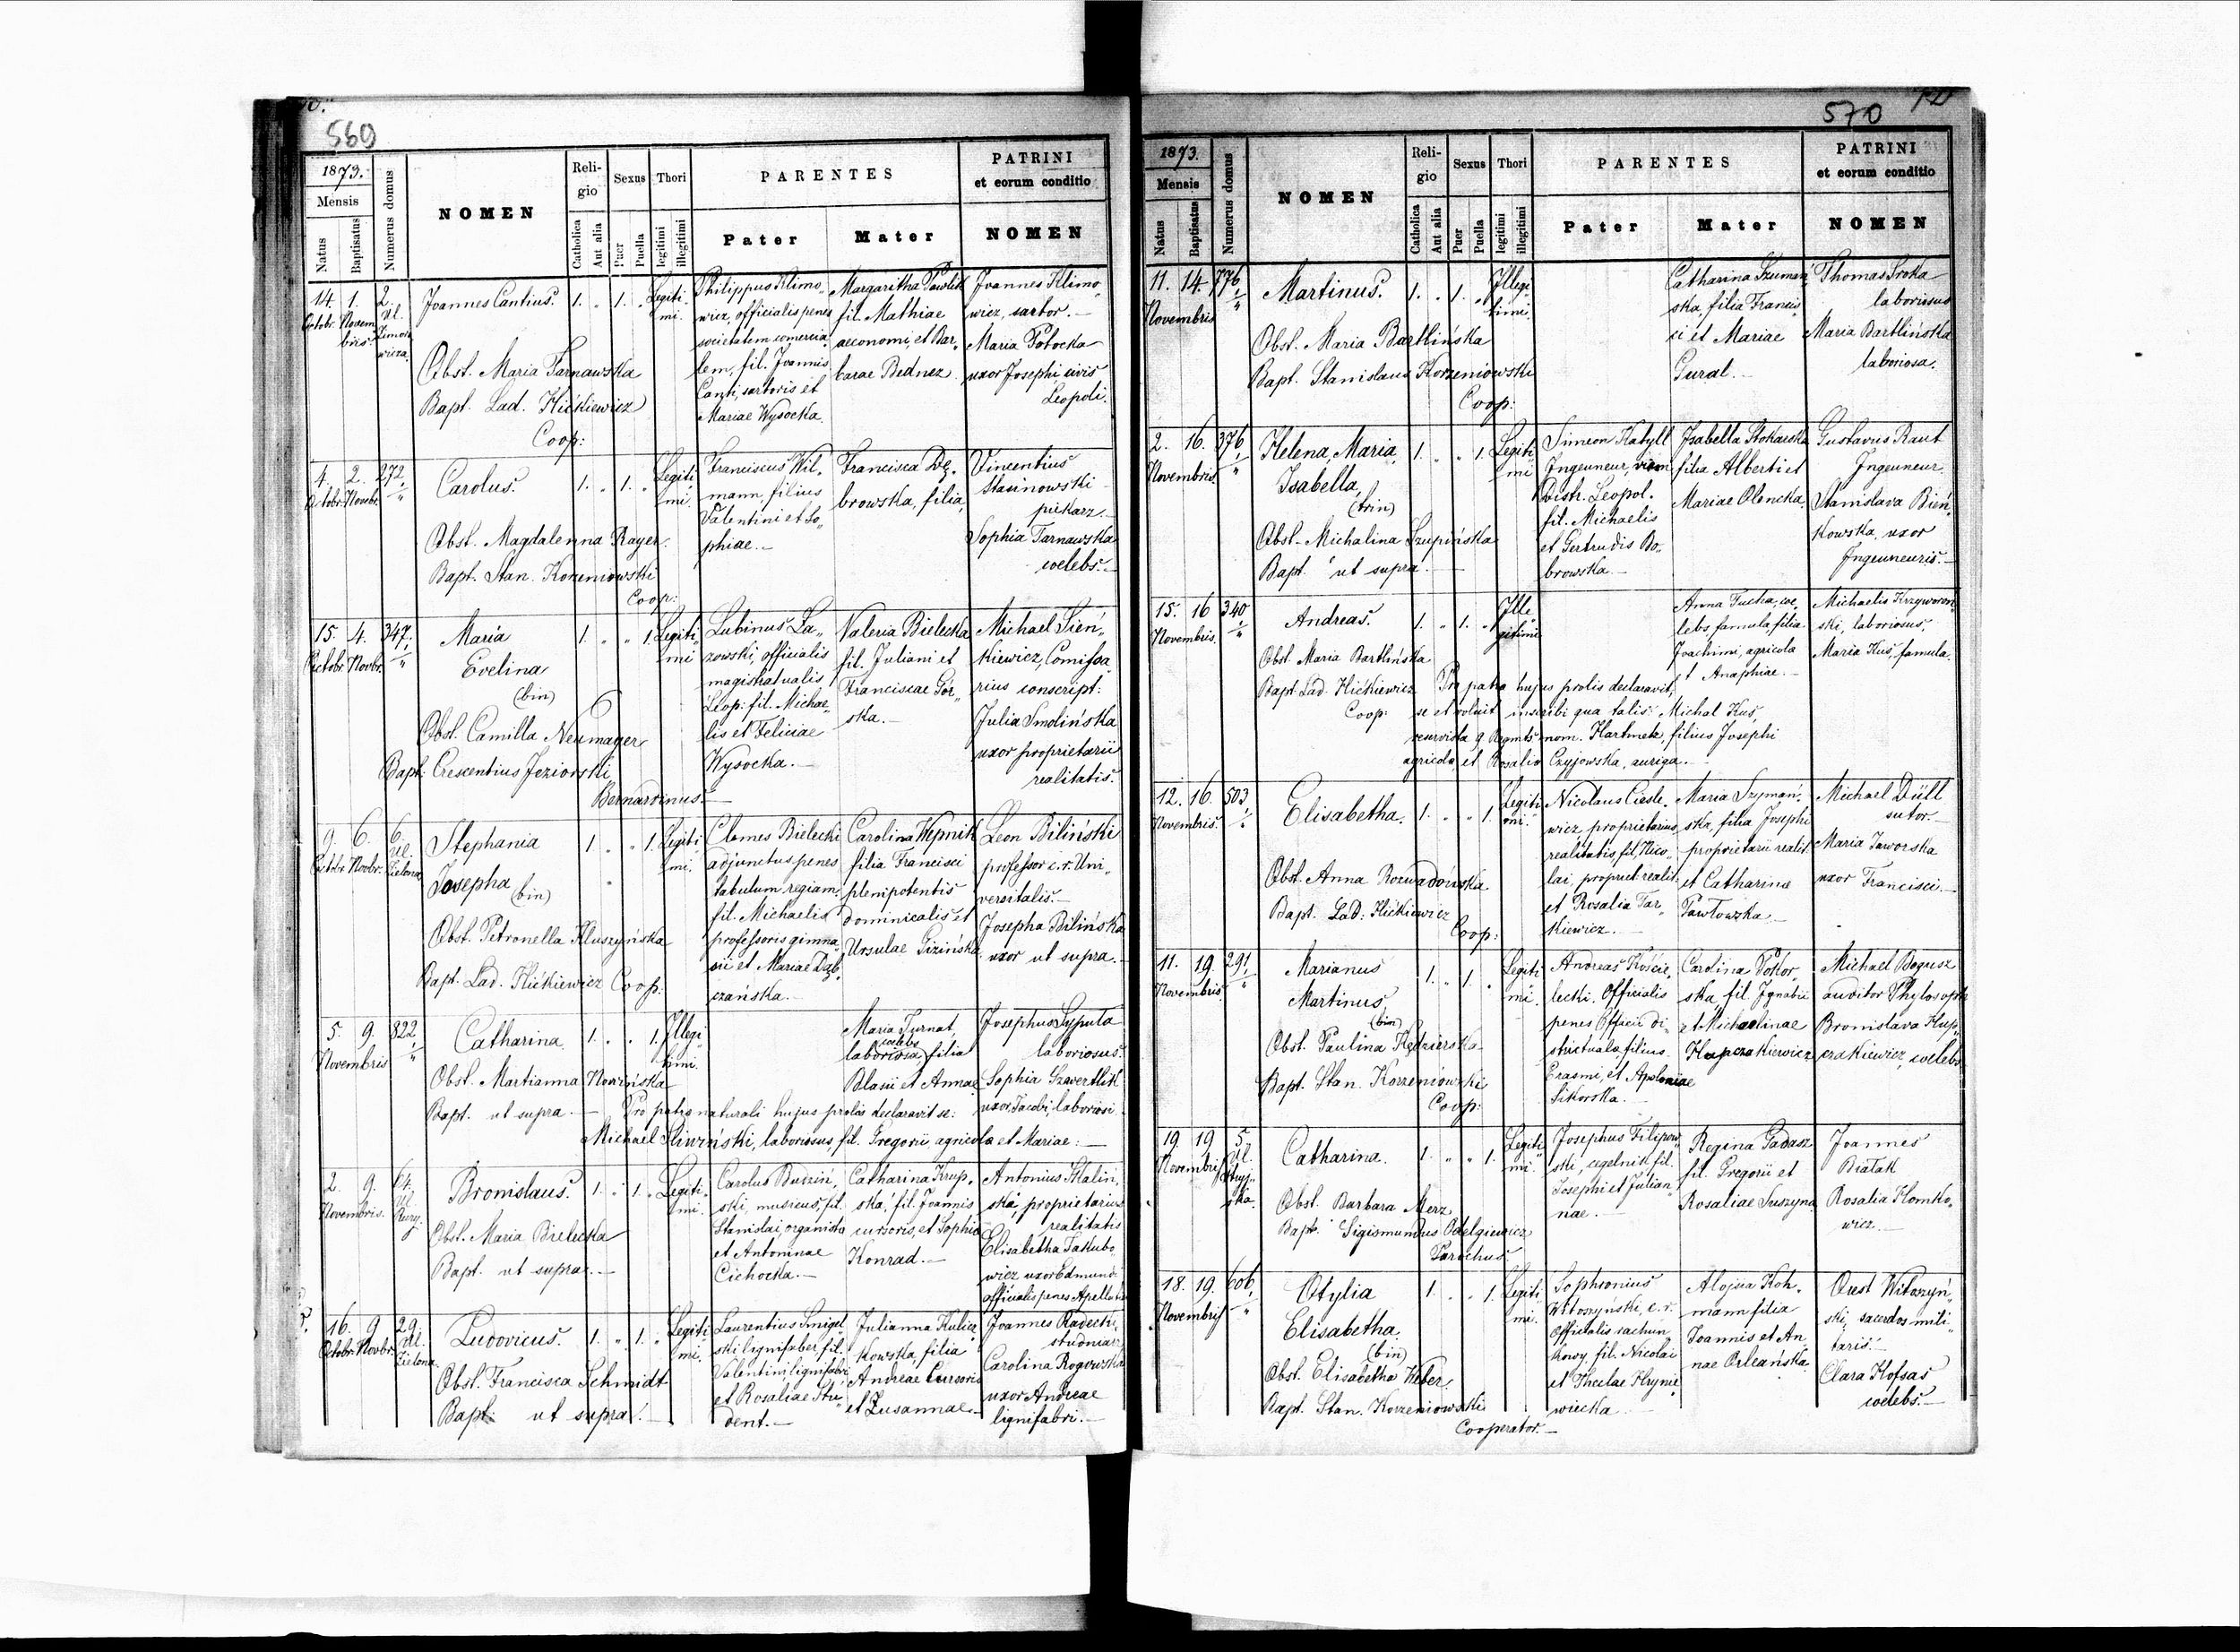 569
1873.
Mensis
Natus
Baptisatus
Numerus domus
NOMEN
Religio
Catholica
Aut alia
Sexus
Puer
Puella
Thori
legitimi
illegitimi
PARENTES
Pater
Mater
PATRINI
et eorum conditio
NOMEN
14. Octobr.
1. Novembris
2. Ul. Zimorowicza
Joannes Cantius.
1. „ 1. „
Legitimi.
Obst. Maria Tarnawska
Bapt. Lad. Hićkiewicz
Coop:
Philippus Klimo„
wicz, officialis penes
societatem comercia„
lem, fil. Joannis
Canti, sartoris et
Mariae Wysocka.
Margaritha Pawlik
fil. Mathiae
aeconomi, et Bar„
barae Bednez.
Joannes Klimo„
wicz, sartor.—
Maria Potocka
uxor Josephi civis
Leopoli.
4. Octobr.
2. Novbr.
272. /„
Carolus.
1. „ 1. „
Legitimi.
Obst. Magdalenna Rayer.
Bapt. Stan. Korzeniowski
Coop:
Franciscus Wil„
mann, filius
Valentini et So„
phiae.—
Francisca Dę„
browska, filia,
Vincentius
Stasinowski
piekarz.—
Sophia Tarnawska
coelebs.—
15. Octobr.
4. Novbr.
347. /„
Maria
Evelina
(bin)
1. „ „ 1.
Legitimi
Obst. Camilla Neumayer
Bapt. Crescentius Jeziorski
Bernardinus.—
Lubinus La„
zowski, officialis
magistratualis
Leop: fil. Michae„
lis et Feliciae
Wysocka.—
Valeria Bielecka
fil. Juliani et
Franciscae Gór„
ska.—
Michael Sień„
kiewicz, Comissa„
rius conscript:
Julia Smolińska
uxor proprietarii
realitatis.
9. Octobr.
6. Novbr.
6. Ul. Zielona
Stephania
Josepha
(bin)
1. „ „ 1.
Legitimi.
Obst. Petronella Kluszyńska
Bapt. Lad. Hićkiewicz Coop:
Clemes Bielecki
adjunctus penes
tabulum regiam.
fil. Michaelis
professoris gimna„
sii et Mariae Dąb„
czańska.—
Carolina Wepnik
filia Francisci
plenipotentis
dominicalis et
Ursulae Gizińska
Leon Biliński
professor c.r. Uni„
versitatis.—
Josepha Bilińska
uxor ut supra.—
5. 9. Novembris
822. /„
Catharina.
1. „ „ 1.
Illegitimi.
Obst. Martianna Nowińska
Bapt. ut supra.—
Maria Turnat,
coelebs
laboriosa, filia
Blasii et Annae
Josephus Syputa
laboriosus.
Sophia Szwertlik
uxor Jacobi, laboriosi.
Pro patre naturali hujus prolis declaravit se:
Michael Sliwiński, laboriosus, fil. Gregorii agricola et Mariae:—
2. 9. Novembris.
64. Ul. Rury.
Bronislaus.
1. „ 1. „
Legitimi.
Obst. Maria Bielecka
Bapt. ut supra.—
Carolus Buziń„
ski, musicus, fil.
Stanislai, organista
et Antoninae
Cichocka.—
Catharina Krup„
ska, fil. Joannis
cursoris, et Sophia
Konrad.—
Antonius Skaliń„
ska, proprietarius
realitatis
Elisabetha Jakubo„
wicz uxor Edmundi
officialis penes
16. Octobr.
9. Novbr.
29. Ul. Zielona
Ludovicus.
1. „ 1. „
Legitimi.
Obst. Francisca Schmidt
Bapt. ut supra.—
Laurentius Smigel„
ski lignifaber, fil.
Valentini, lignifabri
et Rosaliae Stu„
dent.—
Julianna Kulicz„
kowska, filia
Andreae Cursoris
et Zusannae.—
Joannes Radecki,
studiosus
Carolina Rogowska
uxor Andreae
lignifabri.—
570
1873.
Mensis
Natus
Baptisatus
Numerus domus
NOMEN
Religio
Catholica
Aut alia
Sexus
Puer
Puella
Thori
legitimi
illegitimi
PARENTES
Pater
Mater
PATRINI
et eorum conditio
NOMEN
11. 14. Novembris
776. /„
Martinus.
1. „ 1. „
Illegitimi.
Obst. Maria Bartlińska
Bapt. Stanislaus Korzeniowski
Coop:
Catharina Szumań„
ska, filia Francis„
ci et Mariae
Gural.—
Thomas Sroka
laboriosus
Maria Bartlińska
laboriosa.
2. 16. Novembris.
376. /„
Helena, Maria
Isabella,
(trin)
1. „ „ 1.
Legitimi
Obst. Michalina Szupińska
Bapt. ut supra.—
Simeon Katyll
Ingeuneur,
Distr. Leopol.
fil. Michaelis
et Gertrudis Bo„
browska.—
Isabella Stokarska
filia Alberti et
Mariae Olencka.
Gustavus Raut
Ingeuneur.
Stanislava Bień„
kowska, uxor
Ingeuneuris.—
15. 16. Novembris.
340. /„
Andreas.
1. „ 1. „
Illegitimi
Obst. Maria Bartlińska
Bapt. Lad. Hićkiewicz
Coop:
Anna Tucha, coe„
lebs famula, filia
Joachimi, agricola
et Anaphiae.—
Michaelis Krzyworoń„
ski, laboriosus,
Maria Kuś, famula.
Pro patre hujus prolis declaravit,
se et voluit inscribi qua talis: Michal Kuś,
reservista 9 Regmts nom. Hartmek, filius Josephi
agricola, et Rosalia Czyjowska, auriga.—
12. 16. Novembris.
503. /„
Elisabetha.
1. „ „ 1.
Legitimi.
Obst. Anna Rozwadowska
Bapt. Lad: Hićkiewicz
Coop:
Nicolaus Ciesle„
wicz, proprietarius
realitatis, fil. Nico„
lai, propriet. realit.
et Rosalia Tar„
kiewicz.—
Maria Szymań„
ska, filia Josephi
proprietarii realit.
et Catharina
Pawlowska.—
Michael Düll
sutor.—
Maria Jaworska
uxor Francisci.—
11. 19. Novembris
291. /„
Marianus
Martinus
(bin)
1. „ 1. „
Legitimi.
Obst. Paulina Kędzierska
Bapt. Stan. Korzeniowski
Coop:
Andreas Koście„
lecki, Officialis
penes Officii di„
strictuale, filius
Erasmi, et Apoloniae
Sikorska.—
Carolina Pokor„
ska, fil. Ignatii
et Michaelinae
Hupczakiewicz
Michael Bogusz
auditor Phylosoph
Bronislava Hup„
czakiewicz, coelebs
19. 19. Novembris
5. Ul. Stryjska.
Catharina.
1. „ „ 1.
Legitimi.
Obst. Barbara Merz
Bapt. Sigismundus Odelgiewicz
Parochus.
Josephus Filipow„
ski, cegelnik, fil.
Josephi et Julian„
nae.—
Regina Gadasz
fil. Gregorii et
Rosaliae Suszyna
Joannes
Białak
Rosalia Homko„
wicz.—
18. 19. Novembris
606. /„
Otylia
Elisabetha.
(bin)
1. „ „ 1.
Legitimi.
Obst. Elisabetha Weber.
Bapt. Stan. Korzeniowski
Cooperator.—
Sophronius
Witoszyński, c.r.
Officialis rachun„
kowy, fil. Nicolai
et Theclae Hrynie„
wiecka.—
Alojsia Koh„
mann filia
Joannis et An„
nae Orleańska.
Orest Witoszyń„
ski, sacerdos mili„
taris.—
Clara Hofsas
coelebs.—